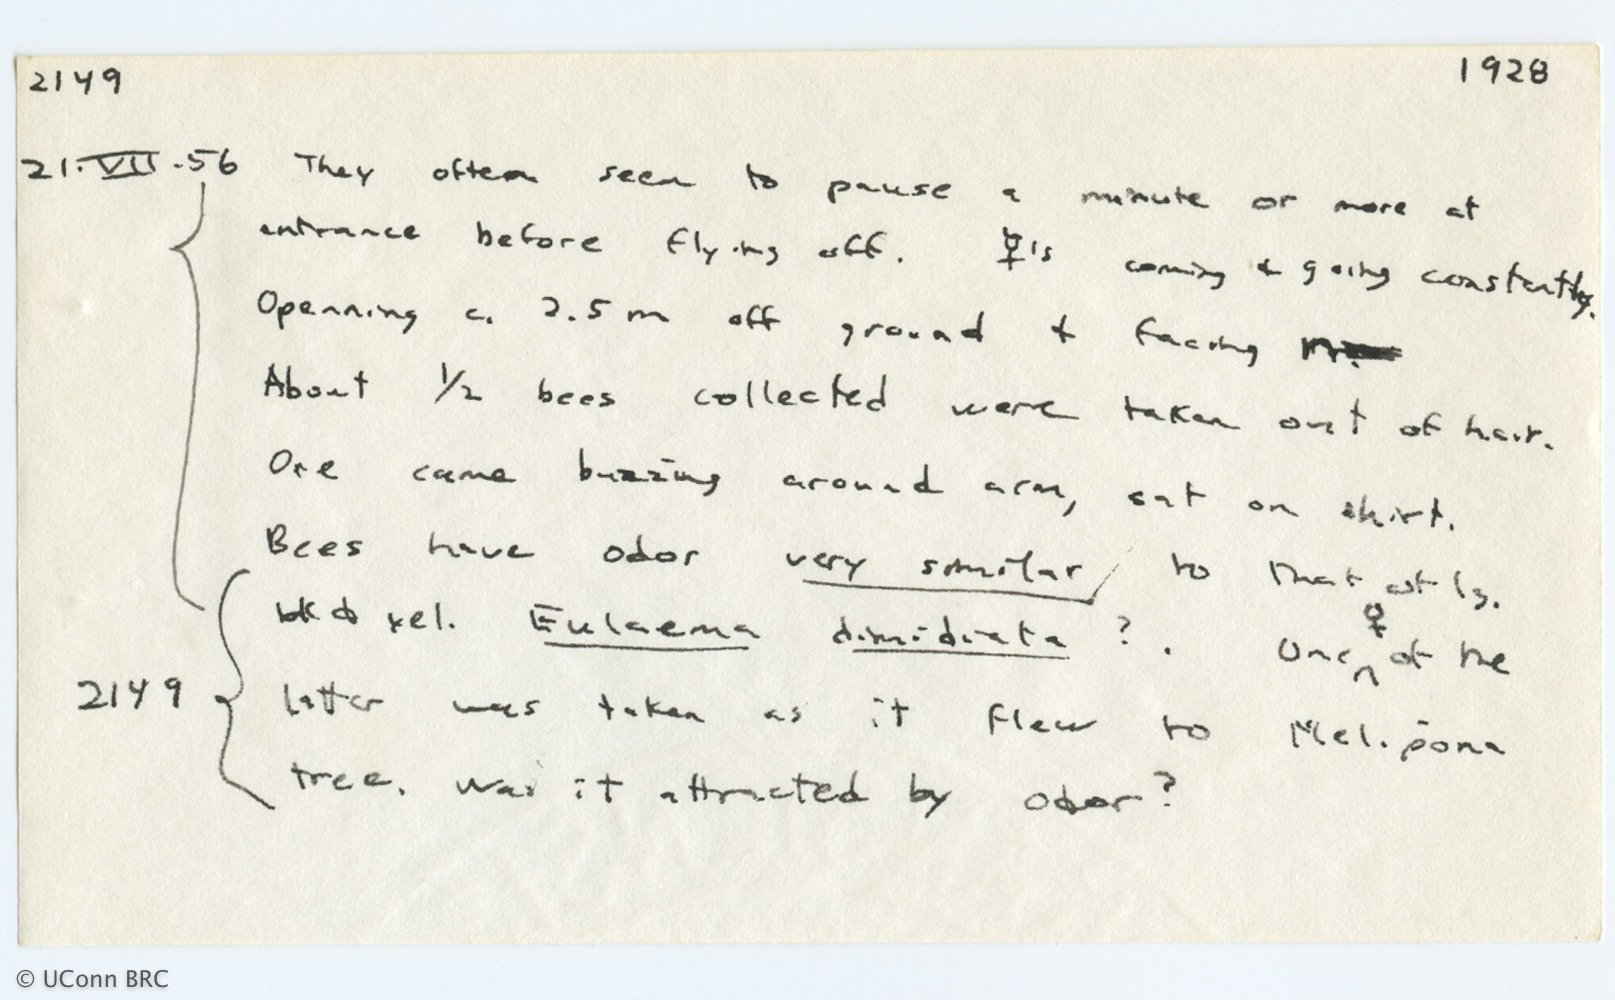 2149 1928
21.VII.56 They often seen to pause a minute or more at
entrance before flying off. ☿'s coming & going constantly.
Openning c. 2.5 m off ground & facing N.
About 1/2 bees collected were taken out of hair.
One came buzzing around arm, sat on shirt.
Bees have odor very similar to that of lg.
bk & yel. Eulaema dimidiata ?. One ♀ of the
2149 latter was taken as it flew to Melipona
tree. Was it attracted by odor?
© UConn BRC